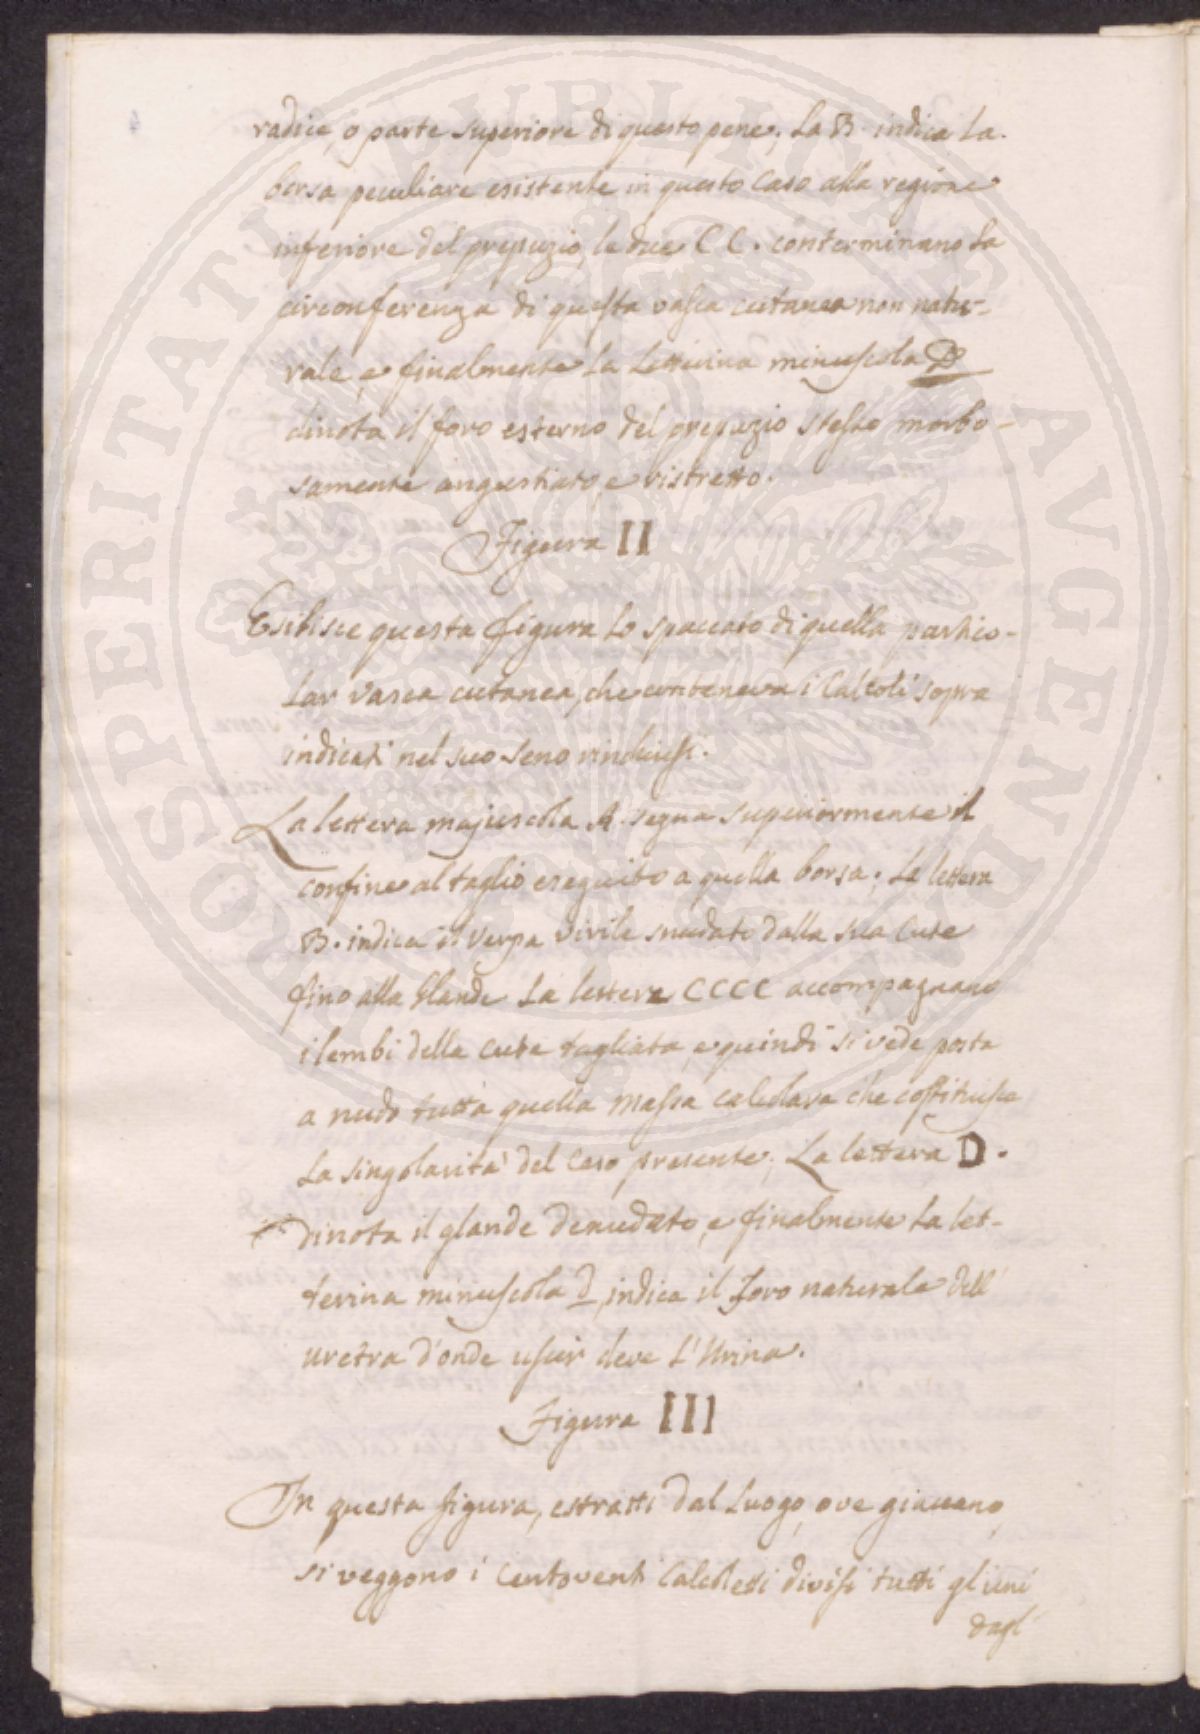 radice, o parte superiore di questo pene; La B. indica La
borsa peculiare esistente in questo caso alla regione
inferiore del prepuzio, le due CC. conterminano La
circonferenza di questa vasca cutanea non natu-
rale, e finalmente La Letterina minuscola D
dinota il foro esterno del prepuzio stesso morbo-
samente angustiato, e ristretto.
Figura II
Esibisce questa figura Lo spaccato di quella partico-
Lar vasca cutanea, che conteneva i Calcoli sopra
indicati nel suo seno rinchiusi.
La lettera majuscola A. segna superiormente il
confine al taglio eseguito a quella borsa; La lettera
B. indica il Verpa virile snudato dalla sua Cute
fino alla Glande La lettera CCCC accompagnano
i lembi della cute tagliata, e quindi si vede posta
a nudo tutta quella massa calcolara che costituisce
La singolarita' del Caso presente; La lettera D.
dinota il glande denudato, e finalmente La let-
terina minuscola d, indica il foro naturale dell'
uretra d'onde uscir deve L'Urina.
Figura III
In questa figura, estratti dal Luogo, ove giacevano,
si veggono i centoventi Calcoletti divisi tutti gli uni
dagl'
PROSPERITATI PUBLICAE AUGENDAE